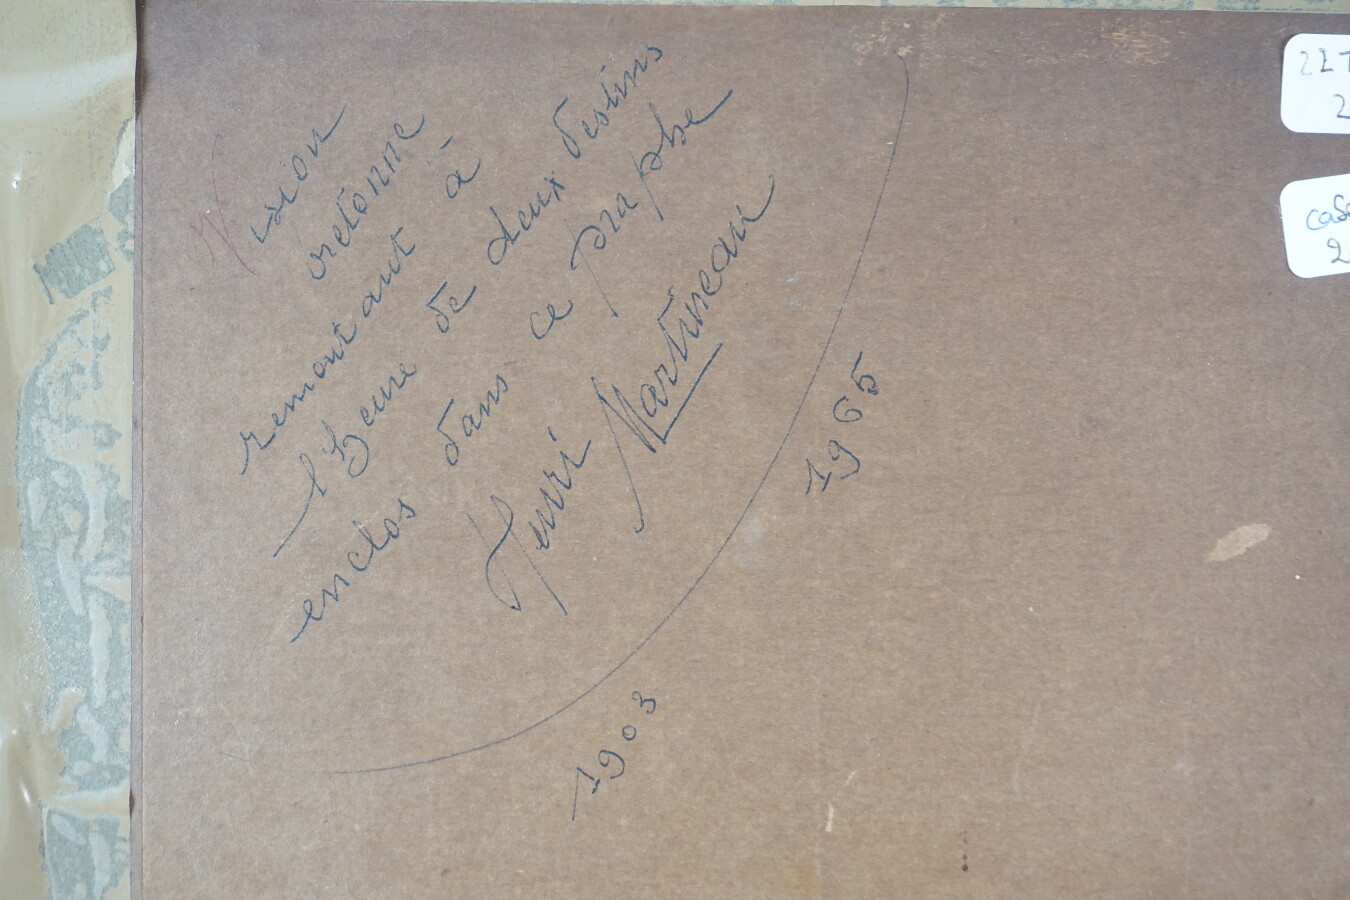 Vision
bretonne
remontant à
l'heure de deux destins
enclos dans ce paraphe
Henri Martineau
1903
1965
227
2
case
2